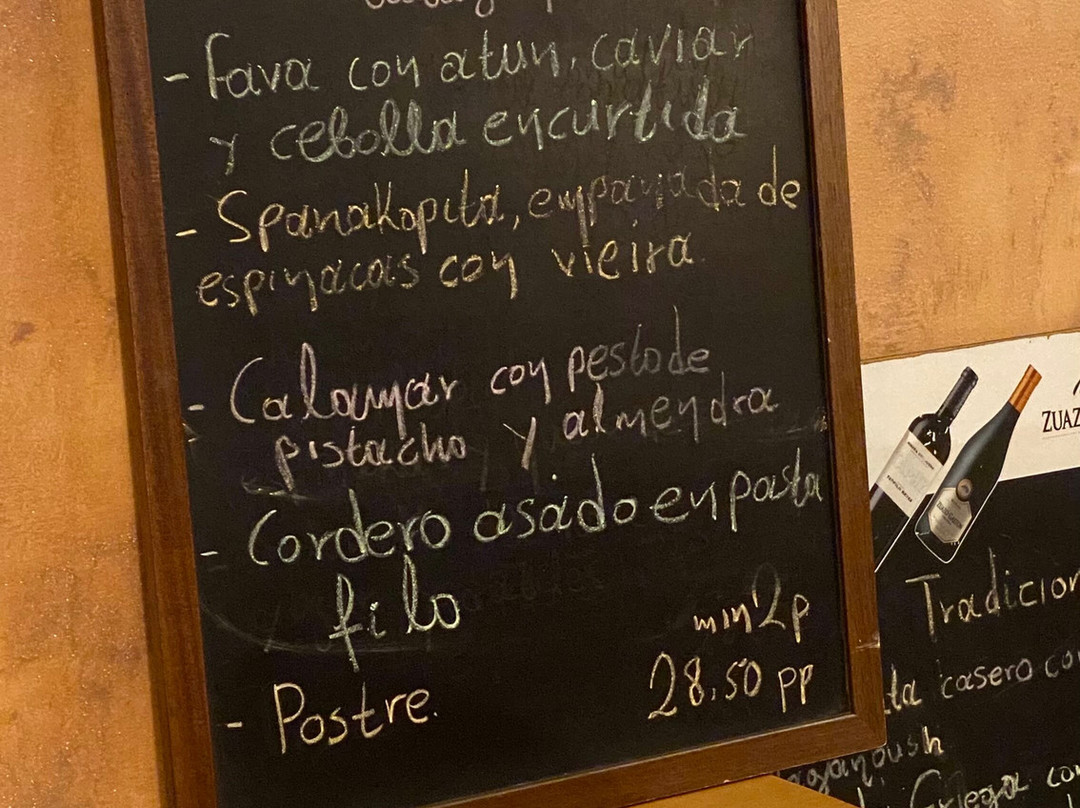 - Fava con atun, caviar
y cebolla encurtida
- Spanakopita, empanada de
espinacas con vieira.
- Calamar con pesto de
pistacho y almendra
- Cordero asado en pasta
filo
min 2p
- Postre. 28,50 pp
ZUAZ
Tradicion
ta casero co
Griega con